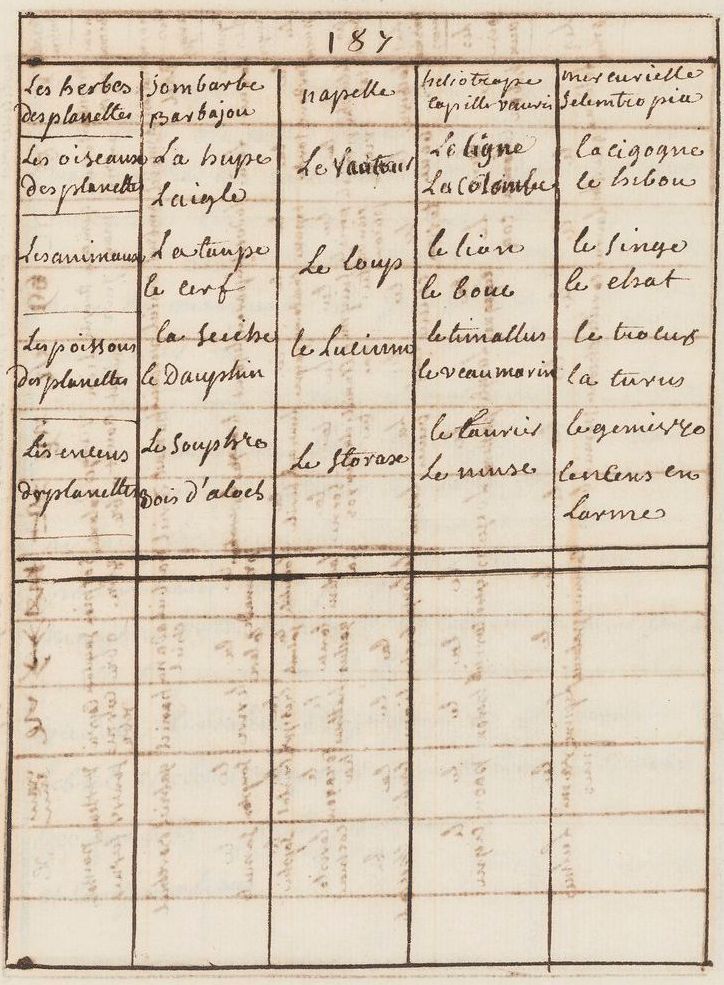 187
Les herbes
des planettes
jombarbe
Barbajou
napelle
heliotrope
Capille veneris
mercurielle
Selemtropia
Les oiseaux
des planettes
La hupe
L'aigle
Le Vautour
Le Cigne
La Colombe
la cigogne
le hibou
Les animaux
La taupe
le cerf
Le loup
le lion
le bouc
le singe
le chat
Les poissons
des planettes
la seiche
le Dauphin
le Lucium
le timallus
le veau marin
le
la
Les encens
des planettes
Le Souphre
Bois d'aloes
Le Storax
le Laurier
Le muse
le
lencens en
Larme